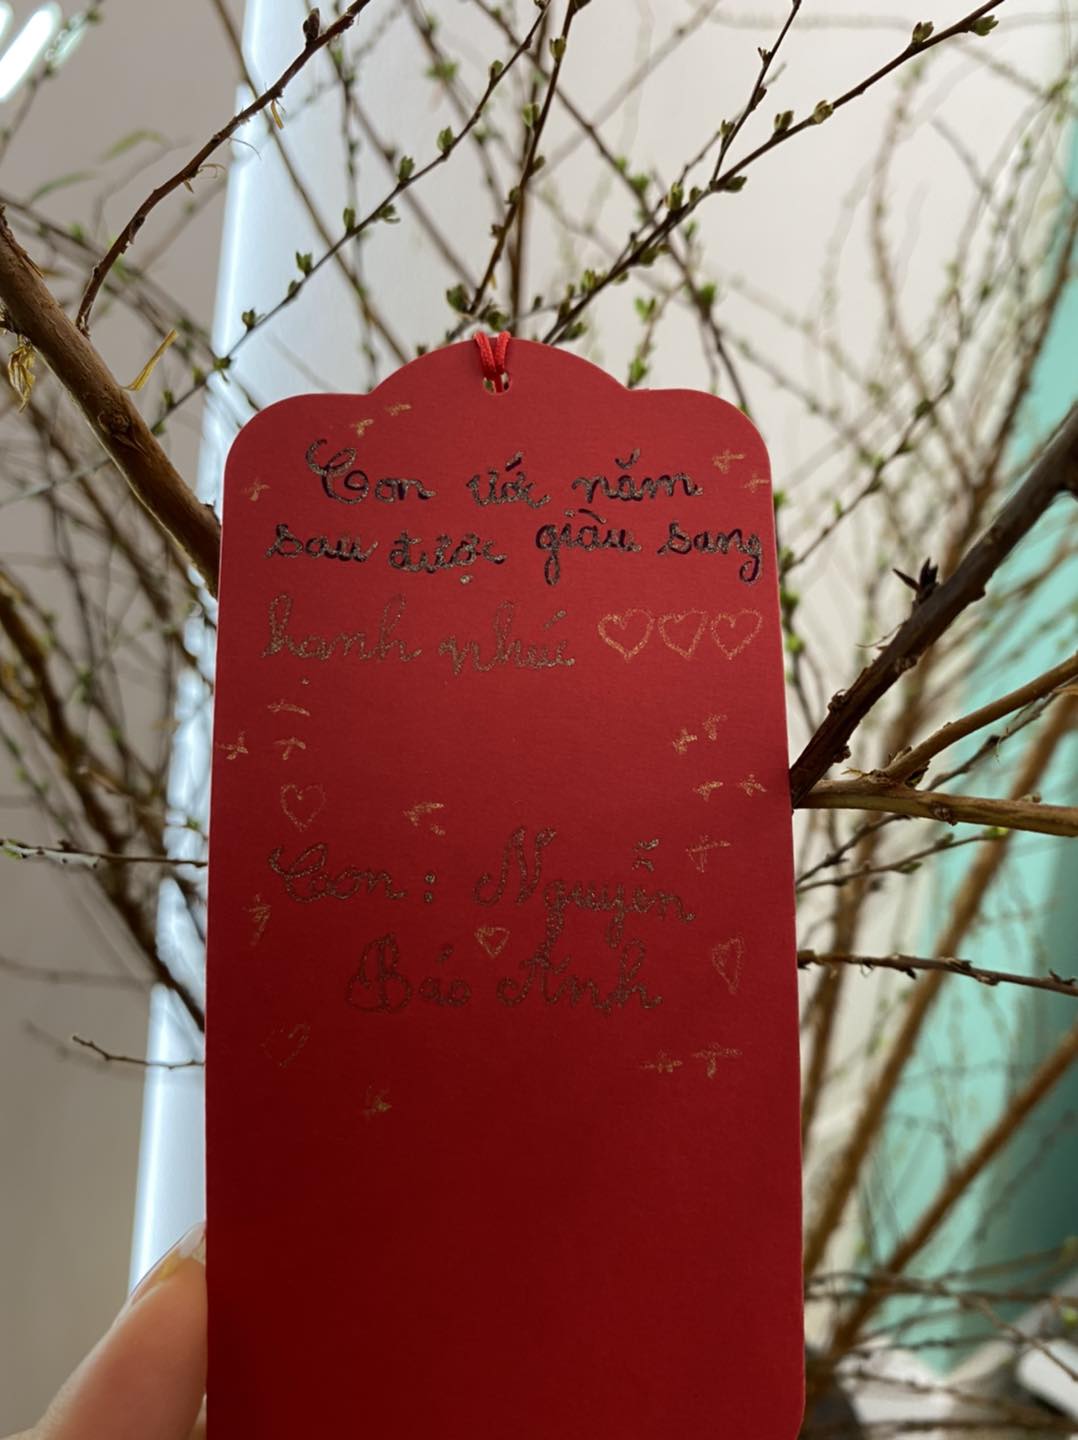 Con ước năm
sau được giàu sang
hanh nhúc
Con: Nguyễn
Bảo Anh